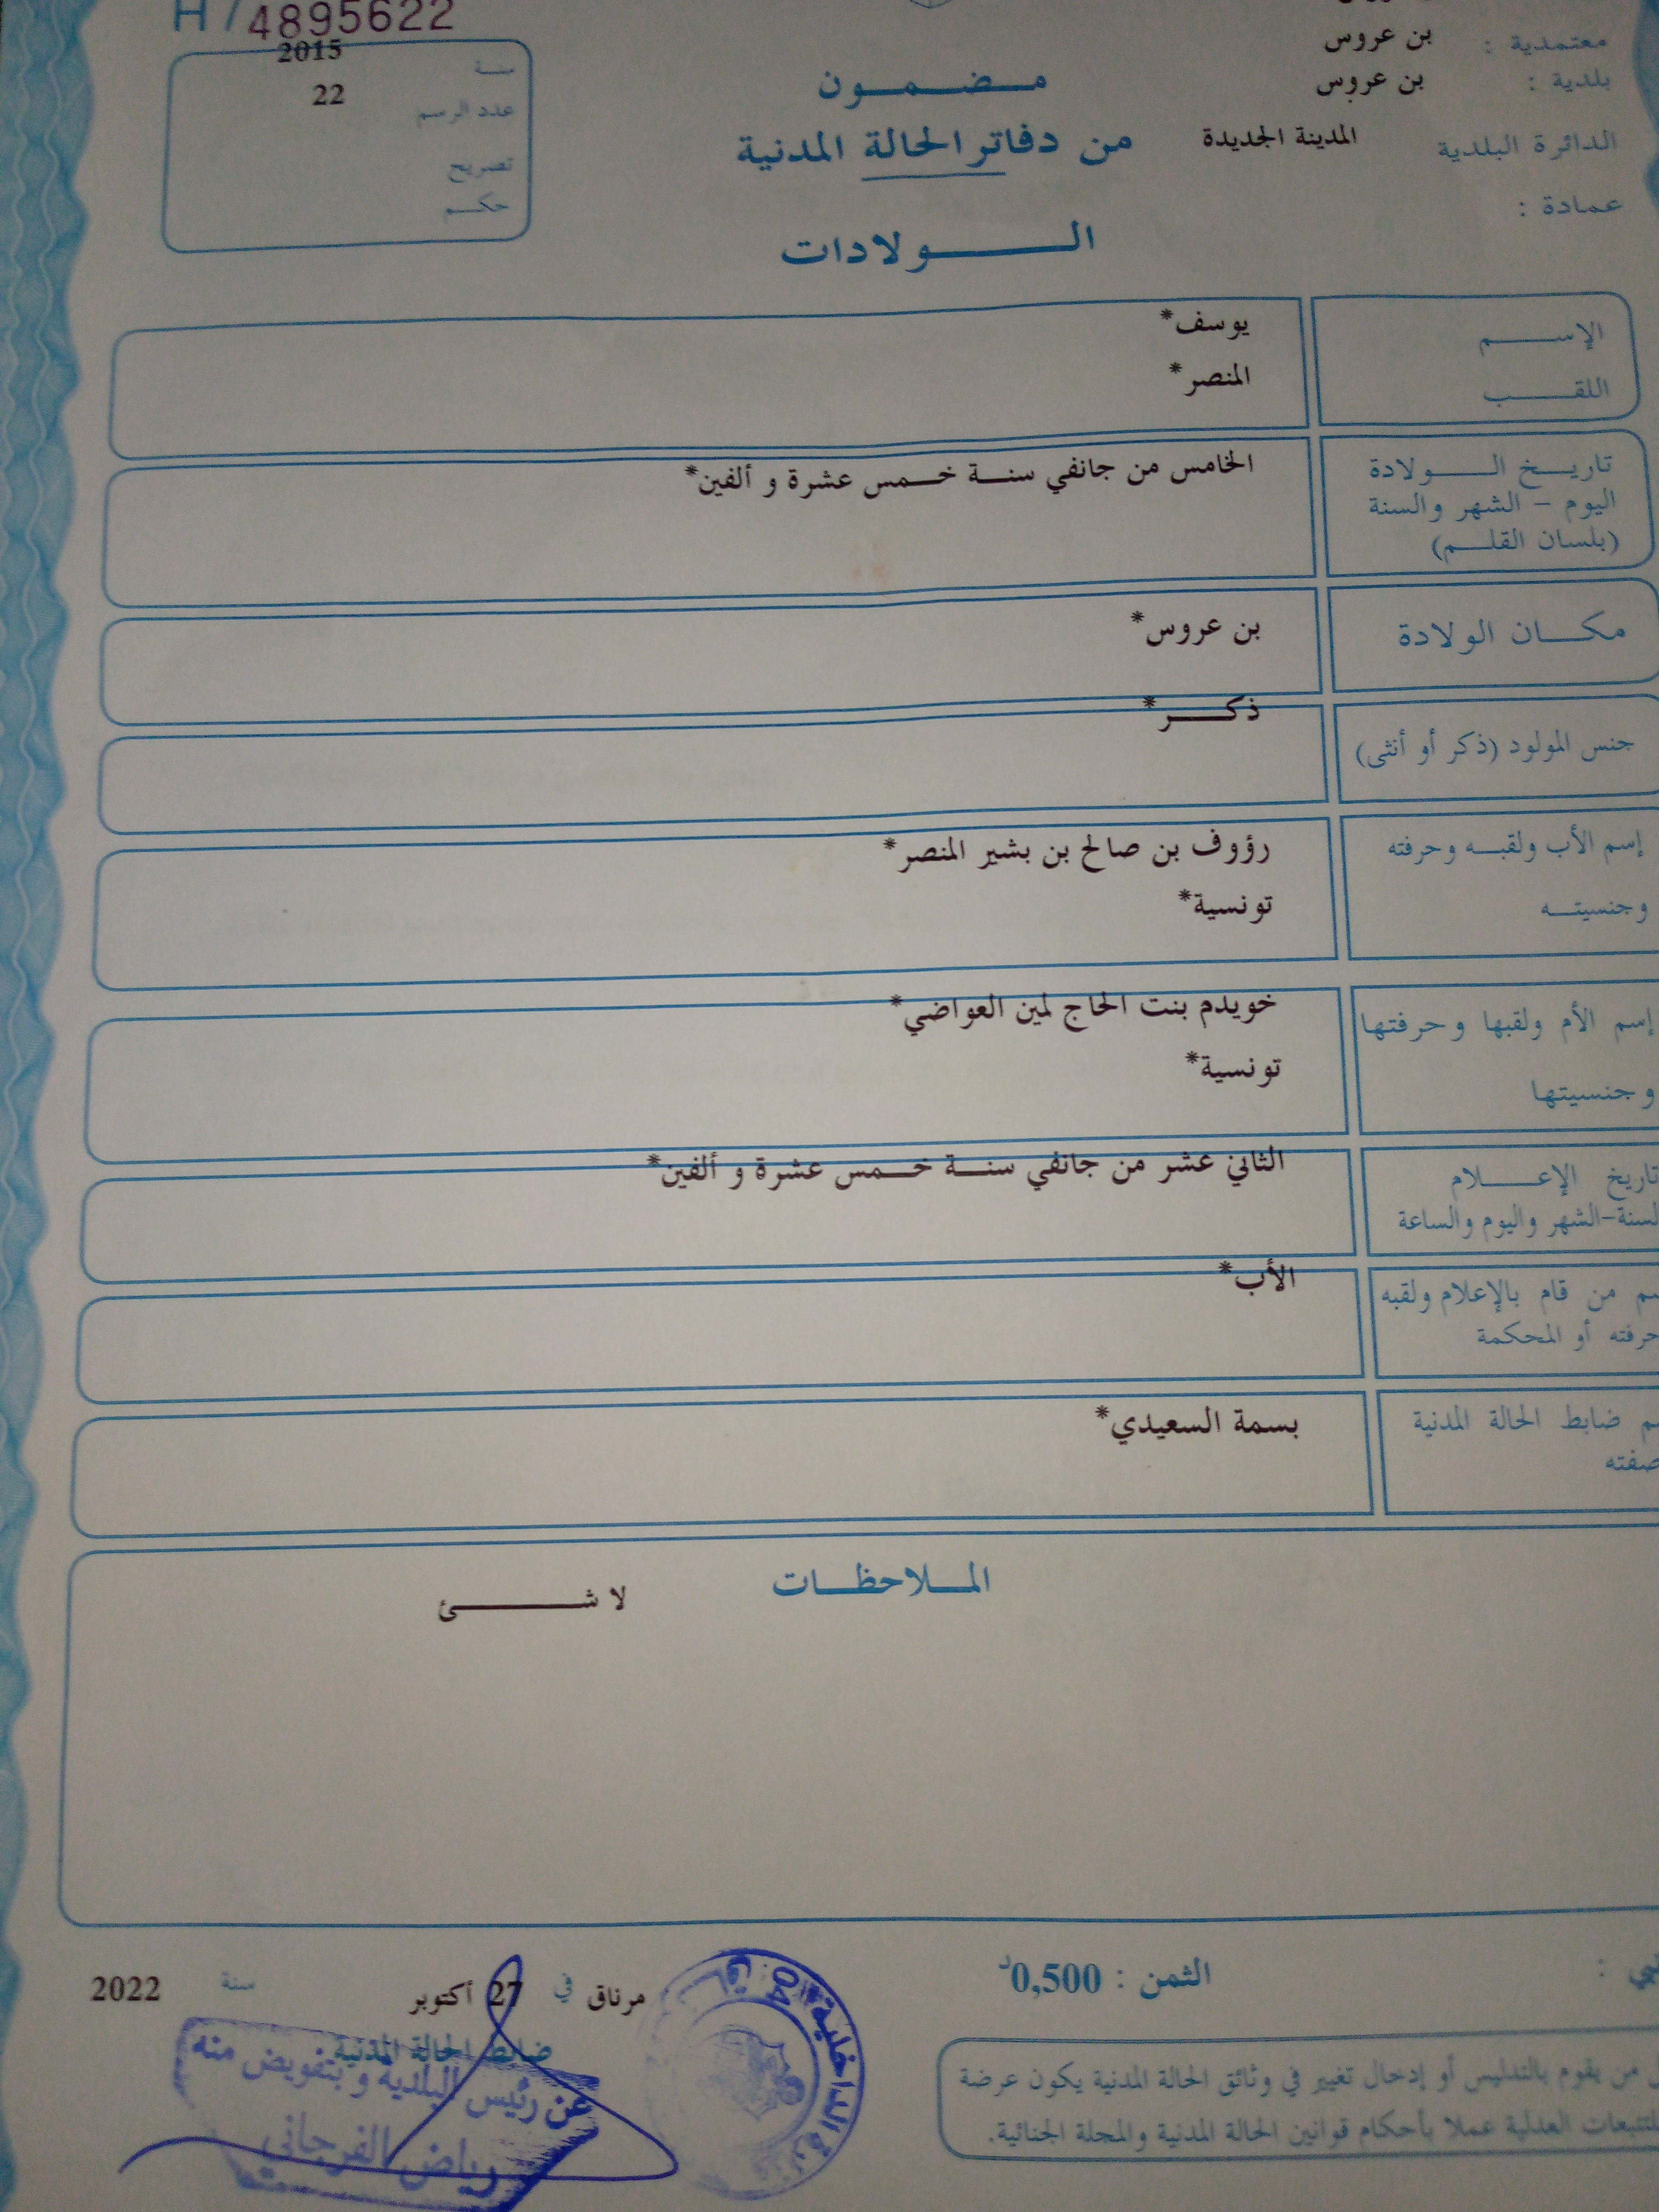 H / 4895622
معتمدية : بن عروس
بلدية : بن عروس
الدائرة البلدية المدينة الجديدة
عمادة :
مضمون
من دفاتر الحالة المدنية
الولادات
سنة 2015
عدد الرسم 22
تصريح
حكم
الإسم يوسف*
اللقب المنصر*
تاريخ الولادة الخامس من جانفي سنة خمس عشرة و ألفين*
اليوم - الشهر والسنة
(بلسان القلم)
مكان الولادة بن عروس*
جنس المولود (ذكر أو أنثى) ذكر*
إسم الأب ولقبه وحرفته رؤوف بن صالح بن بشير المنصر*
وجنسيته تونسية*
إسم الأم ولقبها وحرفتها خويدم بنت الحاج لمين العواضي*
وجنسيتها تونسية*
تاريخ الإعلام الثاني عشر من جانفي سنة خمس عشرة و ألفين*
السنة-الشهر واليوم والساعة
من قام بالإعلام ولقبه الأب*
حرفته أو المحكمة
ضابط الحالة المدنية بسمة السعيدي*
صفته
الملاحظات
لا شئ
الثمن : 0,500د
مرناق في 27 أكتوبر سنة 2022
ضابط الحالة المدنية
عن رئيس البلدية وبتفويض منه
رياض الفرجاني
الداخلية
04
من يقوم بالتدليس أو إدخال تغيير في وثائق الحالة المدنية يكون عرضة
للتتبعات العدلية عملا بأحكام قوانين الحالة المدنية والمجلة الجنائية.